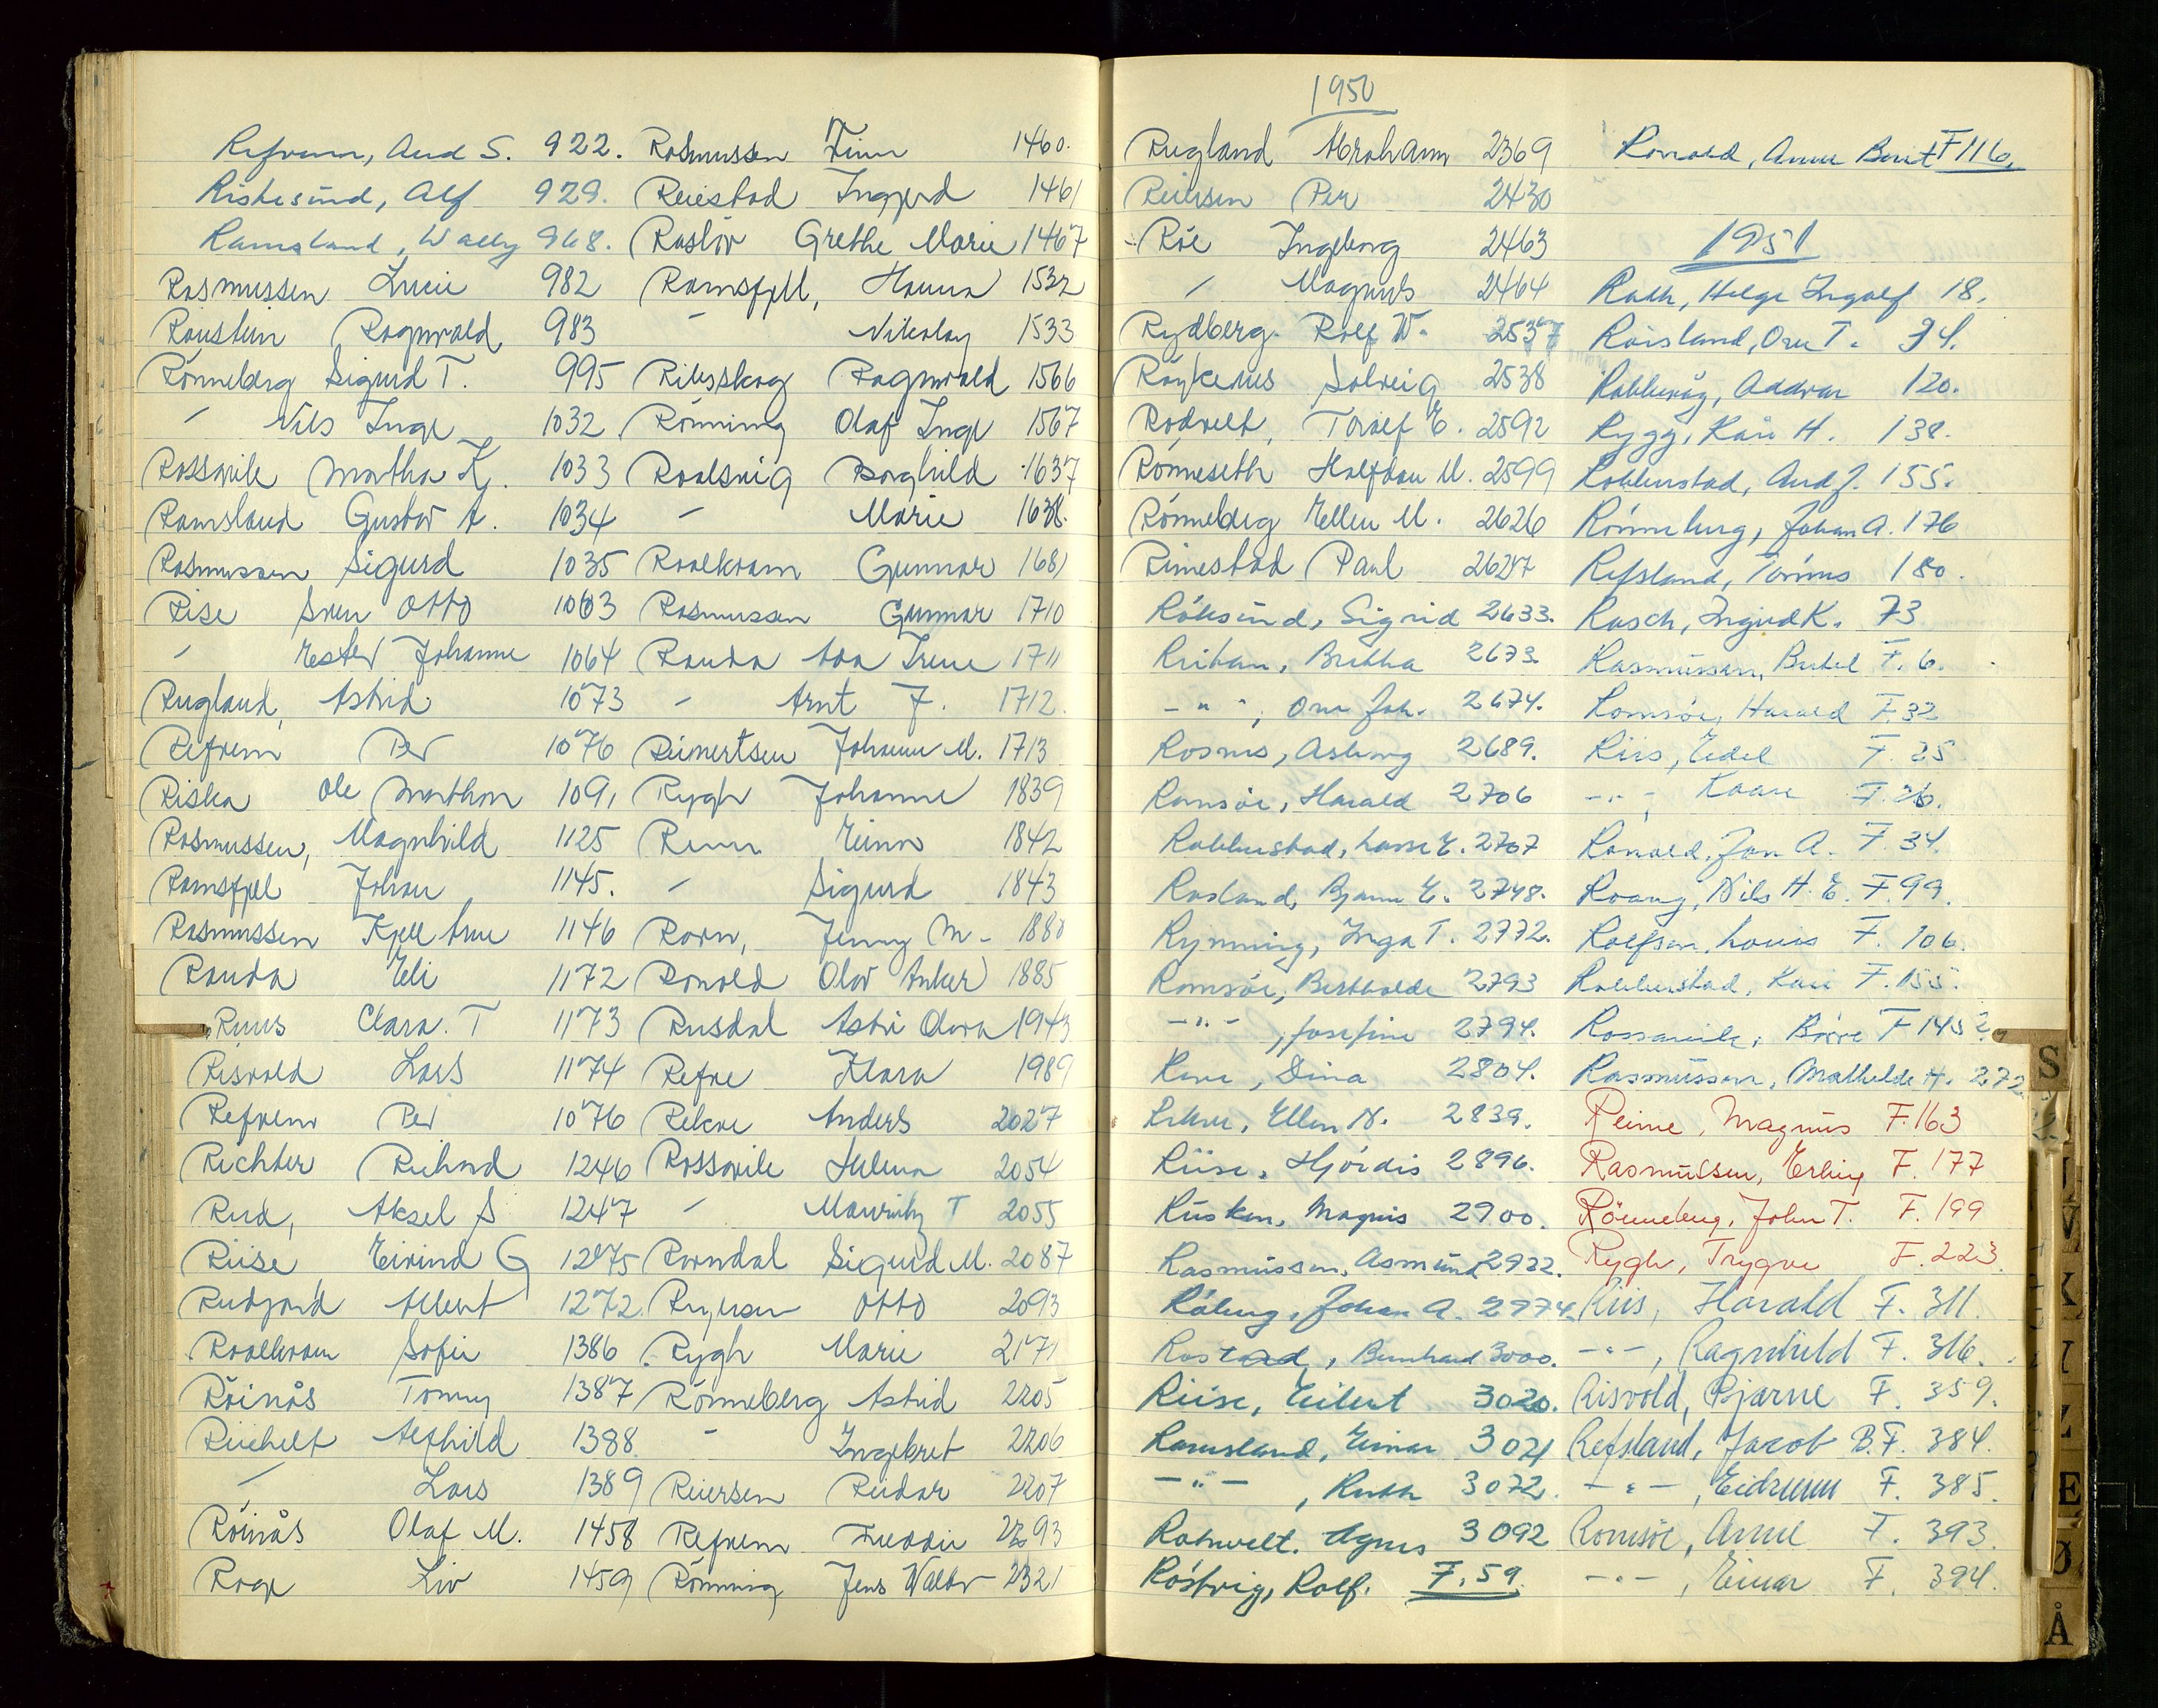 Refrem, Aud S. 922.
Riskesund, Alf 929.
Ramsland, Wally 968.
Rasmussen Lucie 982
Röustein Ragnvald 983
Rönneberg Sigurd T. 995
" Nils Inge 1032
Rossavik Martha K. 1033
Ramsland Gustav A. 1034
Rasmussen Sigurd 1035
Rise Sven Otto 1063
" Ester Johanne 1064
Rugland, Astrid 1073
Refrem Per 1076
Riska Ole Marthon 1091
Rasmussen, Magnhild 1125
Ramsfjell Johan 1145.
Rasmussen Kjell Arne 1146
Randa Eli 1172
Ruus Clara. T 1173
Risvold Lars 1174
Refrem Per 1076
Richter Richard 1246
Rud, Aksel S 1247
Riise Eivind G 1275
Rudjord Albert 1272.
Roalkvam Sofie 1386
Röinås Tonny 1387
Reichelt Alfhild 1388
" Lars 1389
Röinås Olaf M. 1458
Roge Liv 1459
Rasmussen Finn 1460.
Reiestad Ingjerd 1461
Rasløv Grethe Marie 1467
Ramsfjell, Hanna 1532
" Nikolay 1533
Ribsskog Ragnvald 1566
Rönning Olaf Inge 1567
Roalsvig Borghild 1637
" Marie 1638.
Roalkvam Gunnar 1681
Rasmussen Gunnar 1710
Randa Ada Irene 1711
" Arnt J. 1712.
Reinertsen Johanne M. 1713
Rygh Johanne 1839
Reun Einn 1842
" Sigurd 1843
Ravn, Jenny M. 1880
Ronold Olav Anker 1885
Rusdal Astri Olava 1943
Refve Klara 1989
Rekve Anders 2027
Rossavik Helena 2054
" Mauritz T 2055
Ravndal Sigurd M. 2087
Ryersen Otto 2093
Rygh Marie 2171
Rönneberg Astrid 2205
" Ingebret 2206
Reiersen Reidar 2207
Refrem Freddie 2293
Rönning Jens Walter 2321
1950
Rugland Abraham 2369
Reiersen Per 2430
Röe Ingeborg 2463
" Magnus 2464
Rydberg Rolf W. 2537
Röykenes Solveig 2538
Rodvelt, Toralf E. 2592
Rönneseth Halfdan M. 2599
Rönneberg Ellen M. 2626
Rimestad Paul 2627
Röksund, Sigrid 2633.
Reitan, Bertha 2673
- " -, Ove Joh. 2674.
Rosnes, Aslaug 2689.
Ramsöe, Harald 2706
Robberstad, Lasse E. 2707
Rosland, Bjarne E. 2748.
Rynning, Inga T. 2772.
Romsöe, Berthalde 2793
- " -, Josefine 2794.
Rene, Dina 2804.
Rekve, Ellen N. 2839.
Riise, Hjördis 2896.
Rusken, Magnus 2900.
Rasmussen, Asmund 2922.
Råberg, Johan A. 2974.
Rostad, Bernhard 3000.
Riise, Eilert 3020.
Ramsland, Einar 3071
- " -, Ruth 3072.
Rohwelt. Agnes 3092
Röstvig, Rolf. F. 59.
Ronold, Anne Berit F 116.
1951
Rath, Helge Ingolf 18.
Röisland, Ove T. 94.
Robbevåg, Oddvar 120.
Rygg, Kåre H. 138.
Robberstad, Aud J. 155.
Rönneberg, Johan A. 176
Refsland, Tönnes 180.
Rasch, Ingrid K. 73
Rasmussen, Bertel F. 6.
Romsöe, Harald F. 32
Riis, Edel F. 25
- " -, Kaare F. 26.
Ronold, Jon A. F. 34.
Roang, Nils H. E. F. 99.
Rolfsen, Louis F. 106.
Robberstad, Kari F. 155.
Rossavik, Börre F 145
Rasmussen, Mathilde H. 272
Reime, Magnus F. 163
Rasmussen, Erling F. 177
Rönneberg, John T. F. 199
Rygh, Trygve F. 223.
Riis, Harald F. 311.
- " -, Ragnhild F. 316.
Risvold, Bjarne F. 359.
Refsland, Jacob B. F. 384.
- " -, Eidrunn F. 385.
Romsöe, Arne F. 393.
- " -, Einar F. 394.
S
V
K
Y
Z
E
Ø
Å